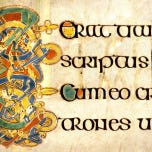 erat titu
scriptus
cum eo cr
trones u